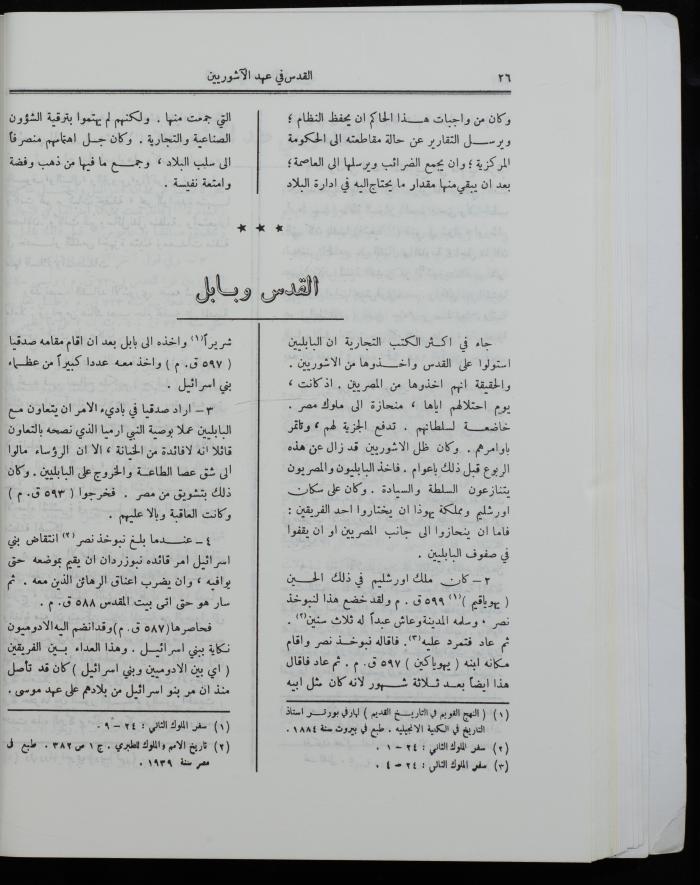 ٢٦
القدس في عهد الآشوريين
وكان من واجبات هذا الحاكم ان يحفظ النظام ؛
ويرسل التقارير عن حالة مقاطعته الى الحكومة
المركزية ؛ وان يجمع الضرائب ويرسلها الى العاصمة ؛
بعد ان يبقي منها مقدار ما يحتاج اليه في ادارة البلاد
التي جمعت منها . ولكنهم لم يهتموا بترقية الشؤون
الصناعية والتجارية . وكان جل اهتمامهم منصرفاً
الى سلب البلاد ، وجمع ما فيها من ذهب وفضة
وامتعة نفيسة .
* * *
القدس وبابل
جاء في اكثر الكتب التجارية ان البابليين
استولوا على القدس واخذوها من الاشوريين .
والحقيقة انهم اخذوها من المصريين . اذ كانت ،
يوم احتلالهم اياها ، منحازة الى ملوك مصر .
خاضعة لسلطانهم . تدفع الجزية لهم ، وتأتمر
باوامرهم . وكان ظل الاشوريين قد زال عن هذه
الربوع قبل ذلك باعوام . فاخذ البابليون والمصريون
يتنازعون السلطة والسيادة . وكان على سكان
اورشليم ومملكة يهوذا ان يختاروا احد الفريقين :
فاما ان ينحازوا الى جانب المصريين او ان يقفوا
في صفوف البابليين .
٢ – كان ملك اورشليم في ذلك الحين
( يهوياقيم )(١) ٥٩٩ ق . م ولقد خضع هذا لنبوخذ
نصر . وسلمه المدينة وعاش عبداً له ثلاث سنين(٢) .
ثم عاد فتمرد عليه(٣) . فاقاله نبوخذ نصر واقام
مكانه ابنه ( يهوياكين ) ٥٩٧ ق . م . ثم عاد فاقال
هذا ايضاً بعد ثلاثة شهور لانه كان مثل ابيه
(١) ( النهج القويم في التاريخ القديم ) لهارفي بورتر استاذ
التاريخ في الكلية الانجيلية . طبع في بيروت سنة ١٨٨٤ .
(٢) سفر الملوك الثاني : ٢٤ – ١ .
(٣) سفر الملوك الثاني : ٢٤ – ٤ .
شريراً(١) واخذه الى بابل بعد ان اقام مقامه صدقيا
( ٥٩٧ ق . م ) واخذ معه عددا كبيراً من عظماء
بني اسرائيل .
٣ – اراد صدقيا في باديء الامر ان يتعاون مع
البابليين عملا بوصية النبي ارميا الذي نصحه بالتعاون
قائلا انه لا فائدة من الخيانة ، الا ان الرؤساء مالوا
الى شق عصا الطاعة والخروج على البابليين . وكان
ذلك بتشويق من مصر . فخرجوا ( ٥٩٣ ق . م )
وكانت العاقبة وبالا عليهم .
٤ – عندما بلغ نبوخذ نصر(٢) انتقاض بني
اسرائيل امر قائده نبوزردان ان يقيم بموضعه حتى
يوافيه ، وان يضرب اعناق الرهائن الذين معه . ثم
سار هو حتى اتى بيت المقدس ٥٨٨ ق . م .
فحاصرها ( ٥٨٧ ق . م ) وقد انضم اليه الادوميون
نكاية ببني اسرائيل . وهذا العداء بين الفريقين
( اي بين الادوميين وبني اسرائيل ) كان قد تأصل
منذ ان مر بنو اسرائيل من بلادهم على عهد موسى .
(١) سفر الملوك الثاني : ٢٤ – ٩ .
(٢) تاريخ الامم والملوك للطبري . ج ١ ص ٣٨٢ . طبع في
مصر سنة ١٩٣٩ .